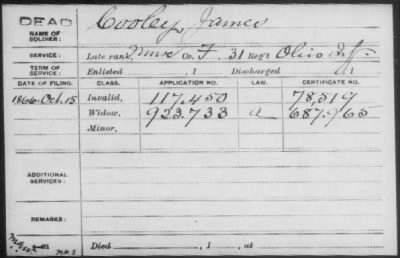 DEAD
NAME OF SOLDIER: Cooley, James
SERVICE: Late rank, Co. F. 31 Reg't Ohio Inf.
TERM OF SERVICE: Enlisted , 1 Discharged , 1
DATE OF FILING. CLASS. APPLICATION NO. LAW. CERTIFICATE NO.
1866. Oct. 15 Invalid, 117.450 78,519
Widow, 923.733 a 687.965
Minor,
ADDITIONAL SERVICES:
REMARKS:
Died , 1 , at